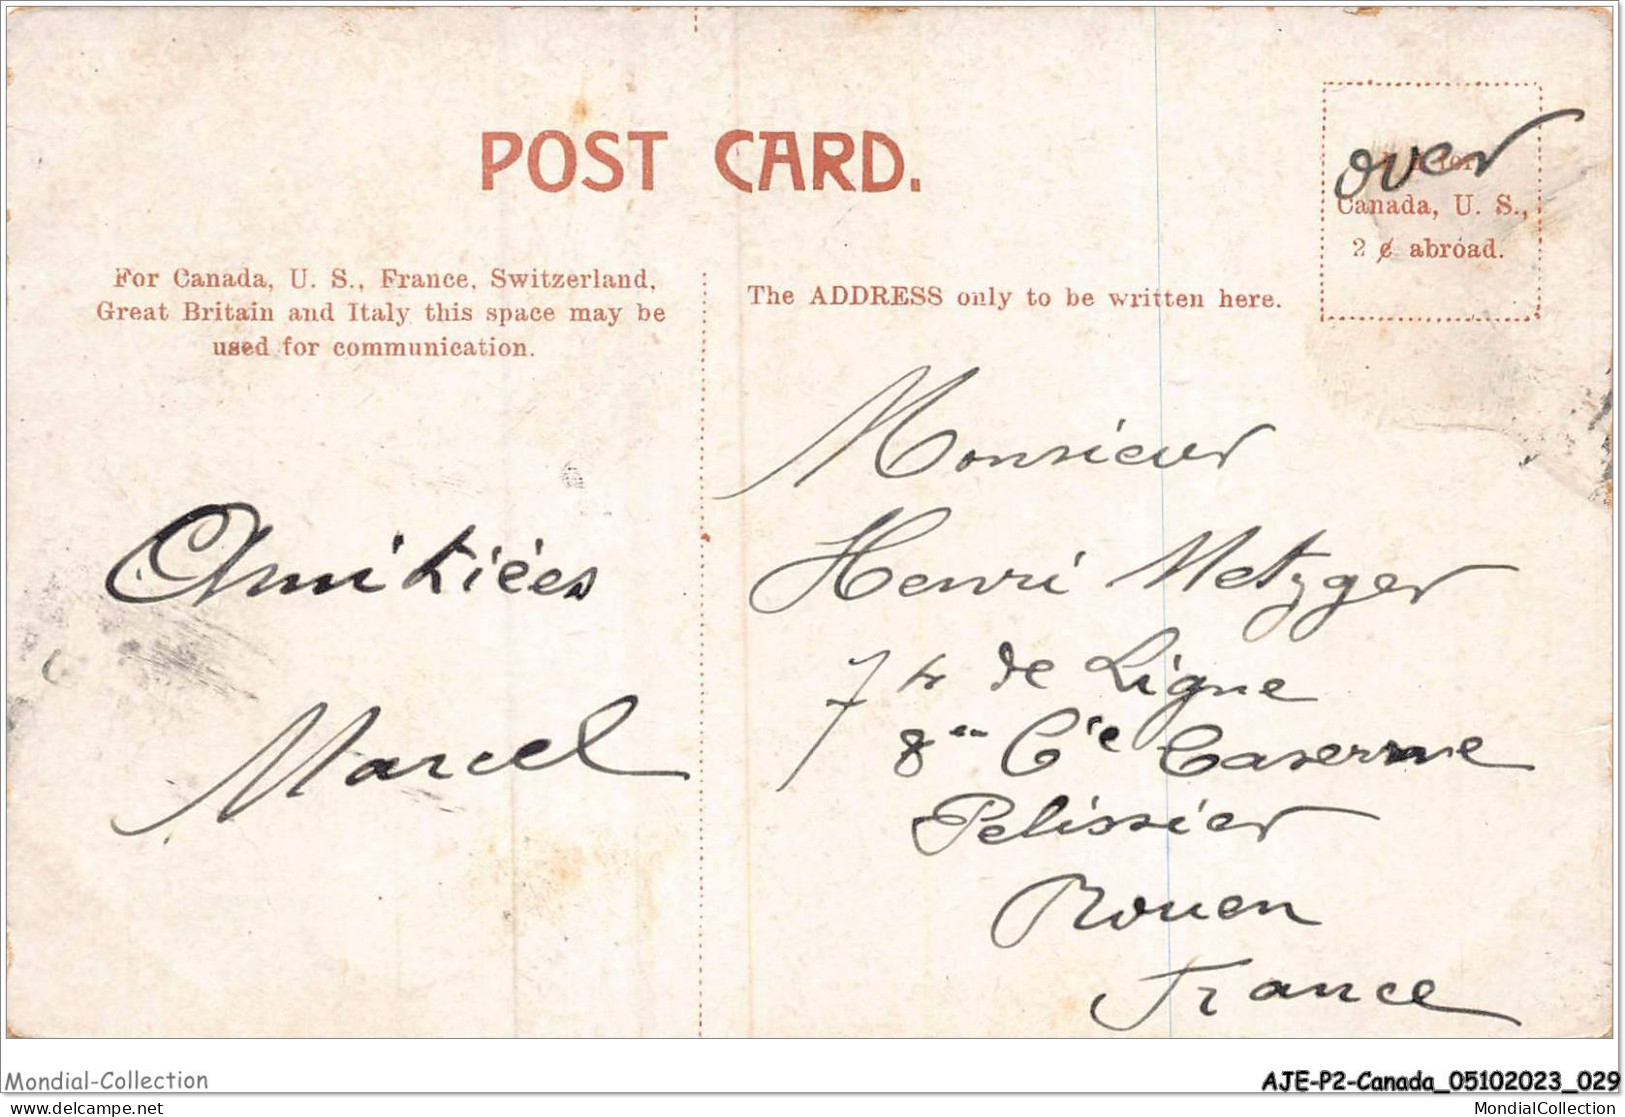 POST CARD.
over
Canada, U. S.,
2 ¢ abroad.
For Canada, U. S., France, Switzerland,
Great Britain and Italy this space may be
used for communication.
The ADDRESS only to be written here.
Amitiées
Marcel
Monsieur
Henri Metzger
74 de Ligne
8me Cie Caserne
Pelissier
Rouen
France
Mondial-Collection
AJE-P2-Canada_05102023_029
delcampe.net
MondialCollection